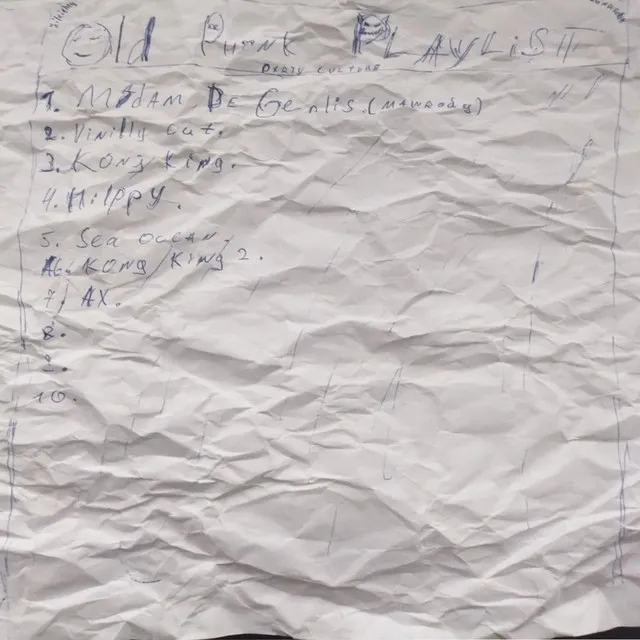 Old Punk PLAYLiST
1. MADAM DE Genlis. (
2. Vinilly cat.
3. Kong King.
4. Hilppy.
5. Sea ocean.
6. Kong King 2.
7) AX.
8.
9.
10.